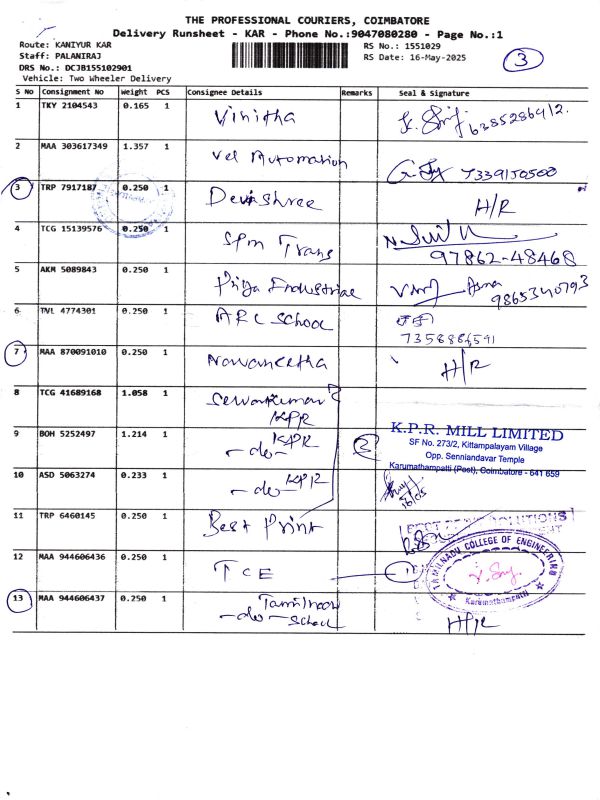 THE PROFESSIONAL COURIERS, COIMBATORE
Delivery Runsheet - KAR - Phone No.:9047080280 - Page No.:1
Route: KANIYUR KAR
RS No.: 1551029
Staff: PALANIRAJ
RS Date: 16-May-2025
3
DRS No.: DCJB155102901
Vehicle: Two Wheeler Delivery
S No Consignment No Weight PCS Consignee Details Remarks Seal & signature
1 TKY 2104543 0.165 1 Vinitha 6385286912.
2 MAA 303617349 1.357 1 Vel Automation 7339150500
3 TRP 7917187 0.250 1 Devishree H/R
4 TCG 15139576 0.250 1 SPM Trans 97862-48468
5 AKM 5089843 0.250 1 Priya Industriae 9865340793
6 TVL 4774301 0.250 1 ARC School
7 MAA 870091010 0.250 1 Navaneetha H/R
8 TCG 41689168 1.058 1 KPR
9 BOH 5252497 1.214 1 -do- KPR 2
K.P.R. MILL LIMITED
SF No. 273/2, Kittampalayam Village
Opp. Senniandavar Temple
Karumathampatti (Post), Coimbatore - 641 659
10 ASD 5063274 0.233 1 -do- KPR
16/05
11 TRP 6460145 0.250 1 Best Print
12 MAA 944606436 0.250 1 TCE
TAMILNADU COLLEGE OF ENGINEERING
Karumathampatti
13 MAA 944606437 0.250 1 -do- School H/R